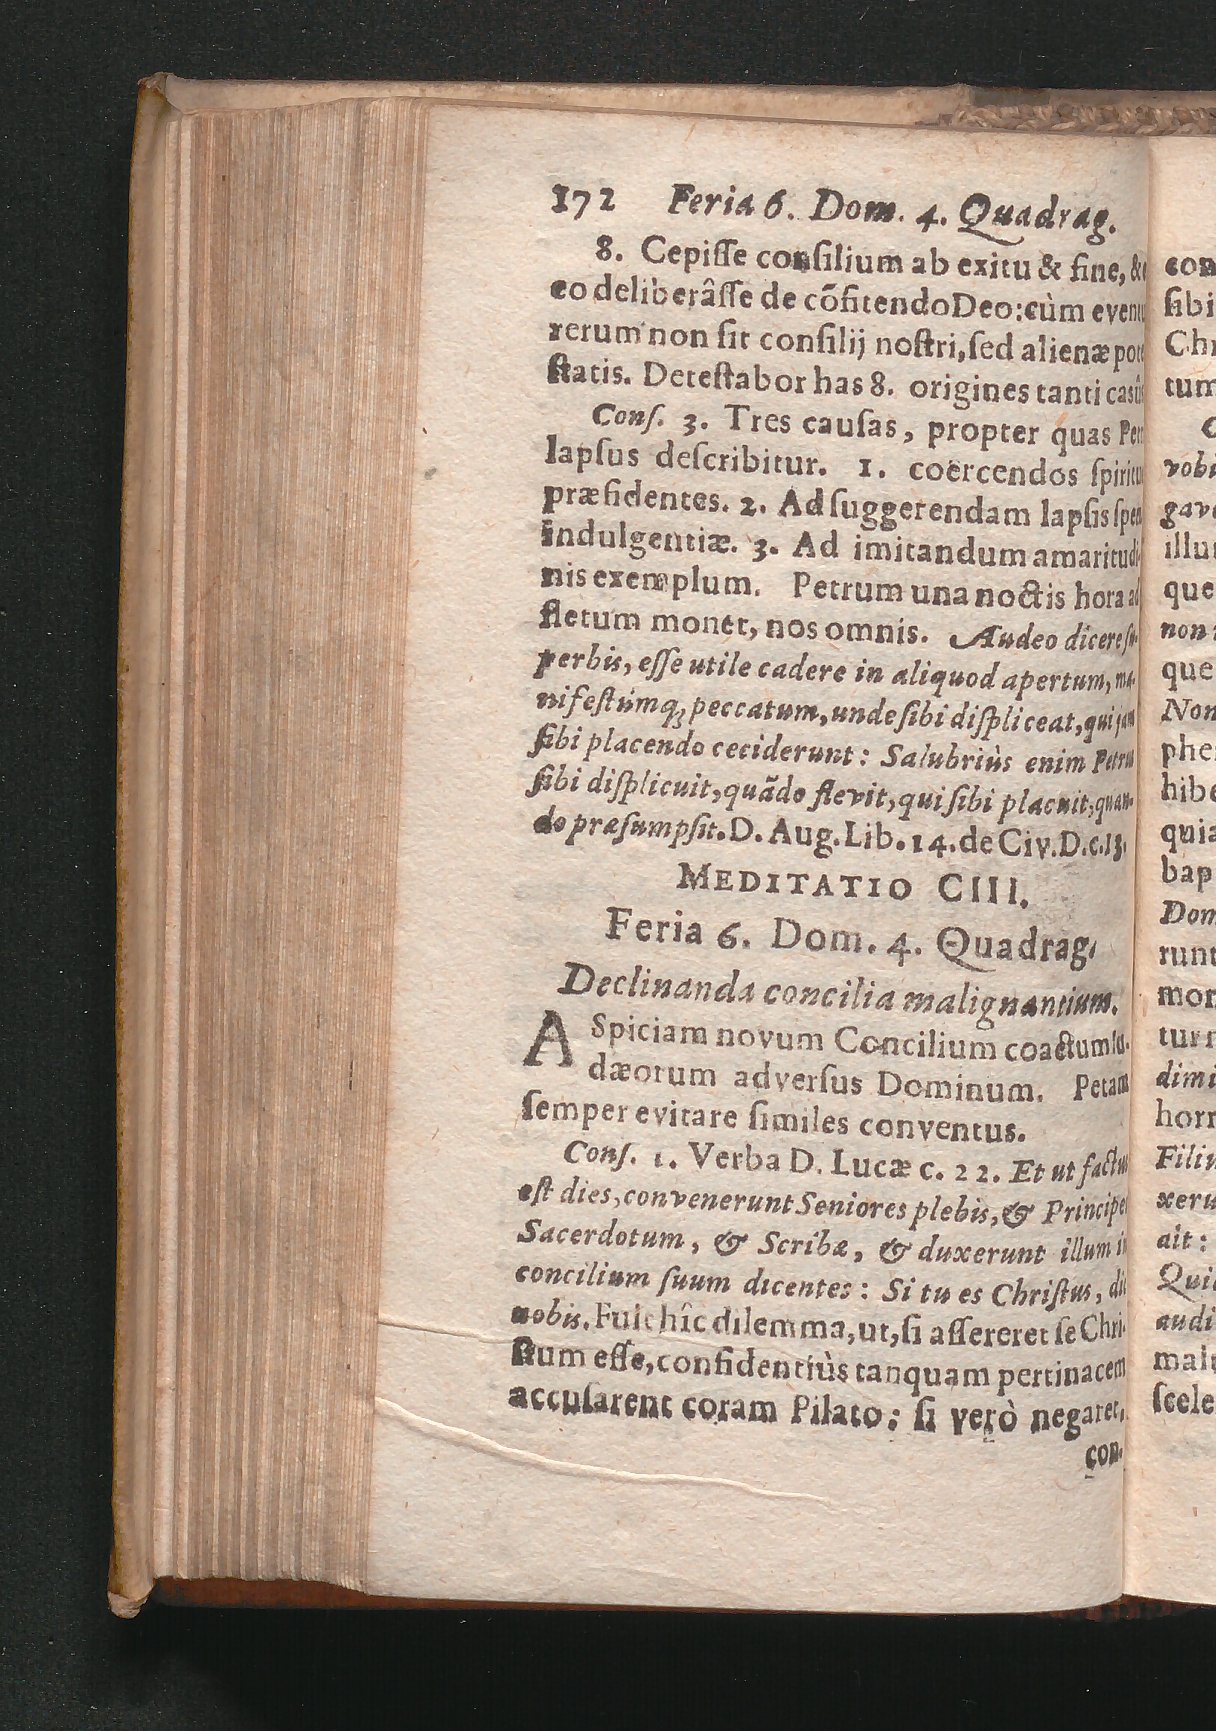 172 Feria 6. Dom. 4. Quadrag.
8. Cepiſſe conſilium ab exitu & fine, &
eo deliberâſſe de cõfitendo Deo: cùm eventu
rerum non ſit conſilij noſtri, ſed alienæ pote
ſtatis. Deteſtabor has 8. origines tanti casûs
Conſ. 3. Tres cauſas, propter quas Petri
lapſus deſcribitur. 1. coërcendos ſpiritu
præſidentes. 2. Ad ſuggerendam lapſis ſpem
indulgentiæ. 3. Ad imitandum amaritudi-
nis exemplum. Petrum una noctis hora ad
fletum monet, nos omnis. Audeo dicere ſu-
perbis, eſſe utile cadere in aliquod apertum, ma-
nifeſtúmq́; peccatum, unde ſibi diſpliceat, qui jam
ſibi placendo ceciderunt: Salubriùs enim Petrus
ſibi diſplicuit, quãdo flevit, qui ſibi placuit, quan-
do præſumpſit. D. Aug. Lib. 14. de Civ. D. c. 13.
MEDITATIO CIII.
Feria 6. Dom. 4. Quadrag.
Declinanda concilia malignantium.
ASpiciam novum Concilium coactum Iu-
dæorum adverſus Dominum. Petam
ſemper evitare ſimiles conventus.
Conſ. 1. Verba D. Lucæ c. 22. Et ut factus
eſt dies, convenerunt Seniores plebis, & Principes
Sacerdotum, & Scribæ, & duxerunt illum in
concilium ſuum dicentes: Si tu es Chriſtus, dic
nobis. Fuit hîc dilemma, ut, ſi aſſereret ſe Chri-
ſtum eſſe, confidentiùs tanquam pertinacem
accuſarent coram Pilato: ſi verò negaret,
con-
con
ſibi
Chr
tum
vobi
gave
illu
que
non
que
Non
phe
hibe
quia
bap
Dom
runt
mor
tur
dimi
horr
Filiu
xeru
ait:
Quid
audi
ſcele